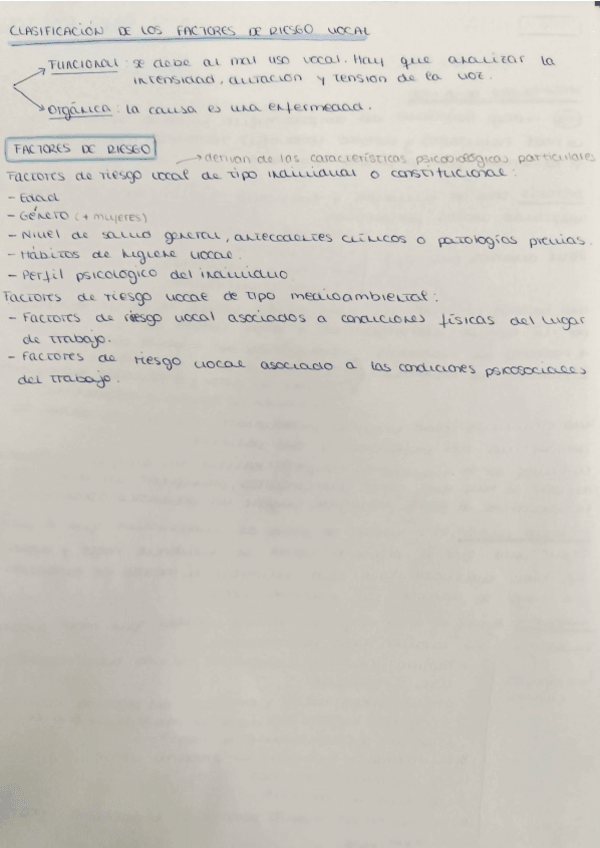 CLASIFICACIÓN DE LOS FACTORES DE RIESGO VOCAL
FUNCIONAL: se debe al mal uso vocal. Hay que analizar la
intensidad, duración y tensión de la voz.
Orgánica: la causa es una enfermedad.
FACTORES DE RIESGO
→ derivan de las características psicobiológicas particulares
Factores de riesgo vocal de tipo individual o constitucional:
- Edad
- Género (+ mujeres)
- Nivel de salud general, antecedentes clínicos o patologías previas.
- Hábitos de higiene vocal.
- Perfil psicológico del individuo
Factores de riesgo vocal de tipo medioambiental:
- Factores de riesgo vocal asociados a condiciones físicas del lugar
de trabajo.
- Factores de riesgo vocal asociado a las condiciones psicosociales
del trabajo.